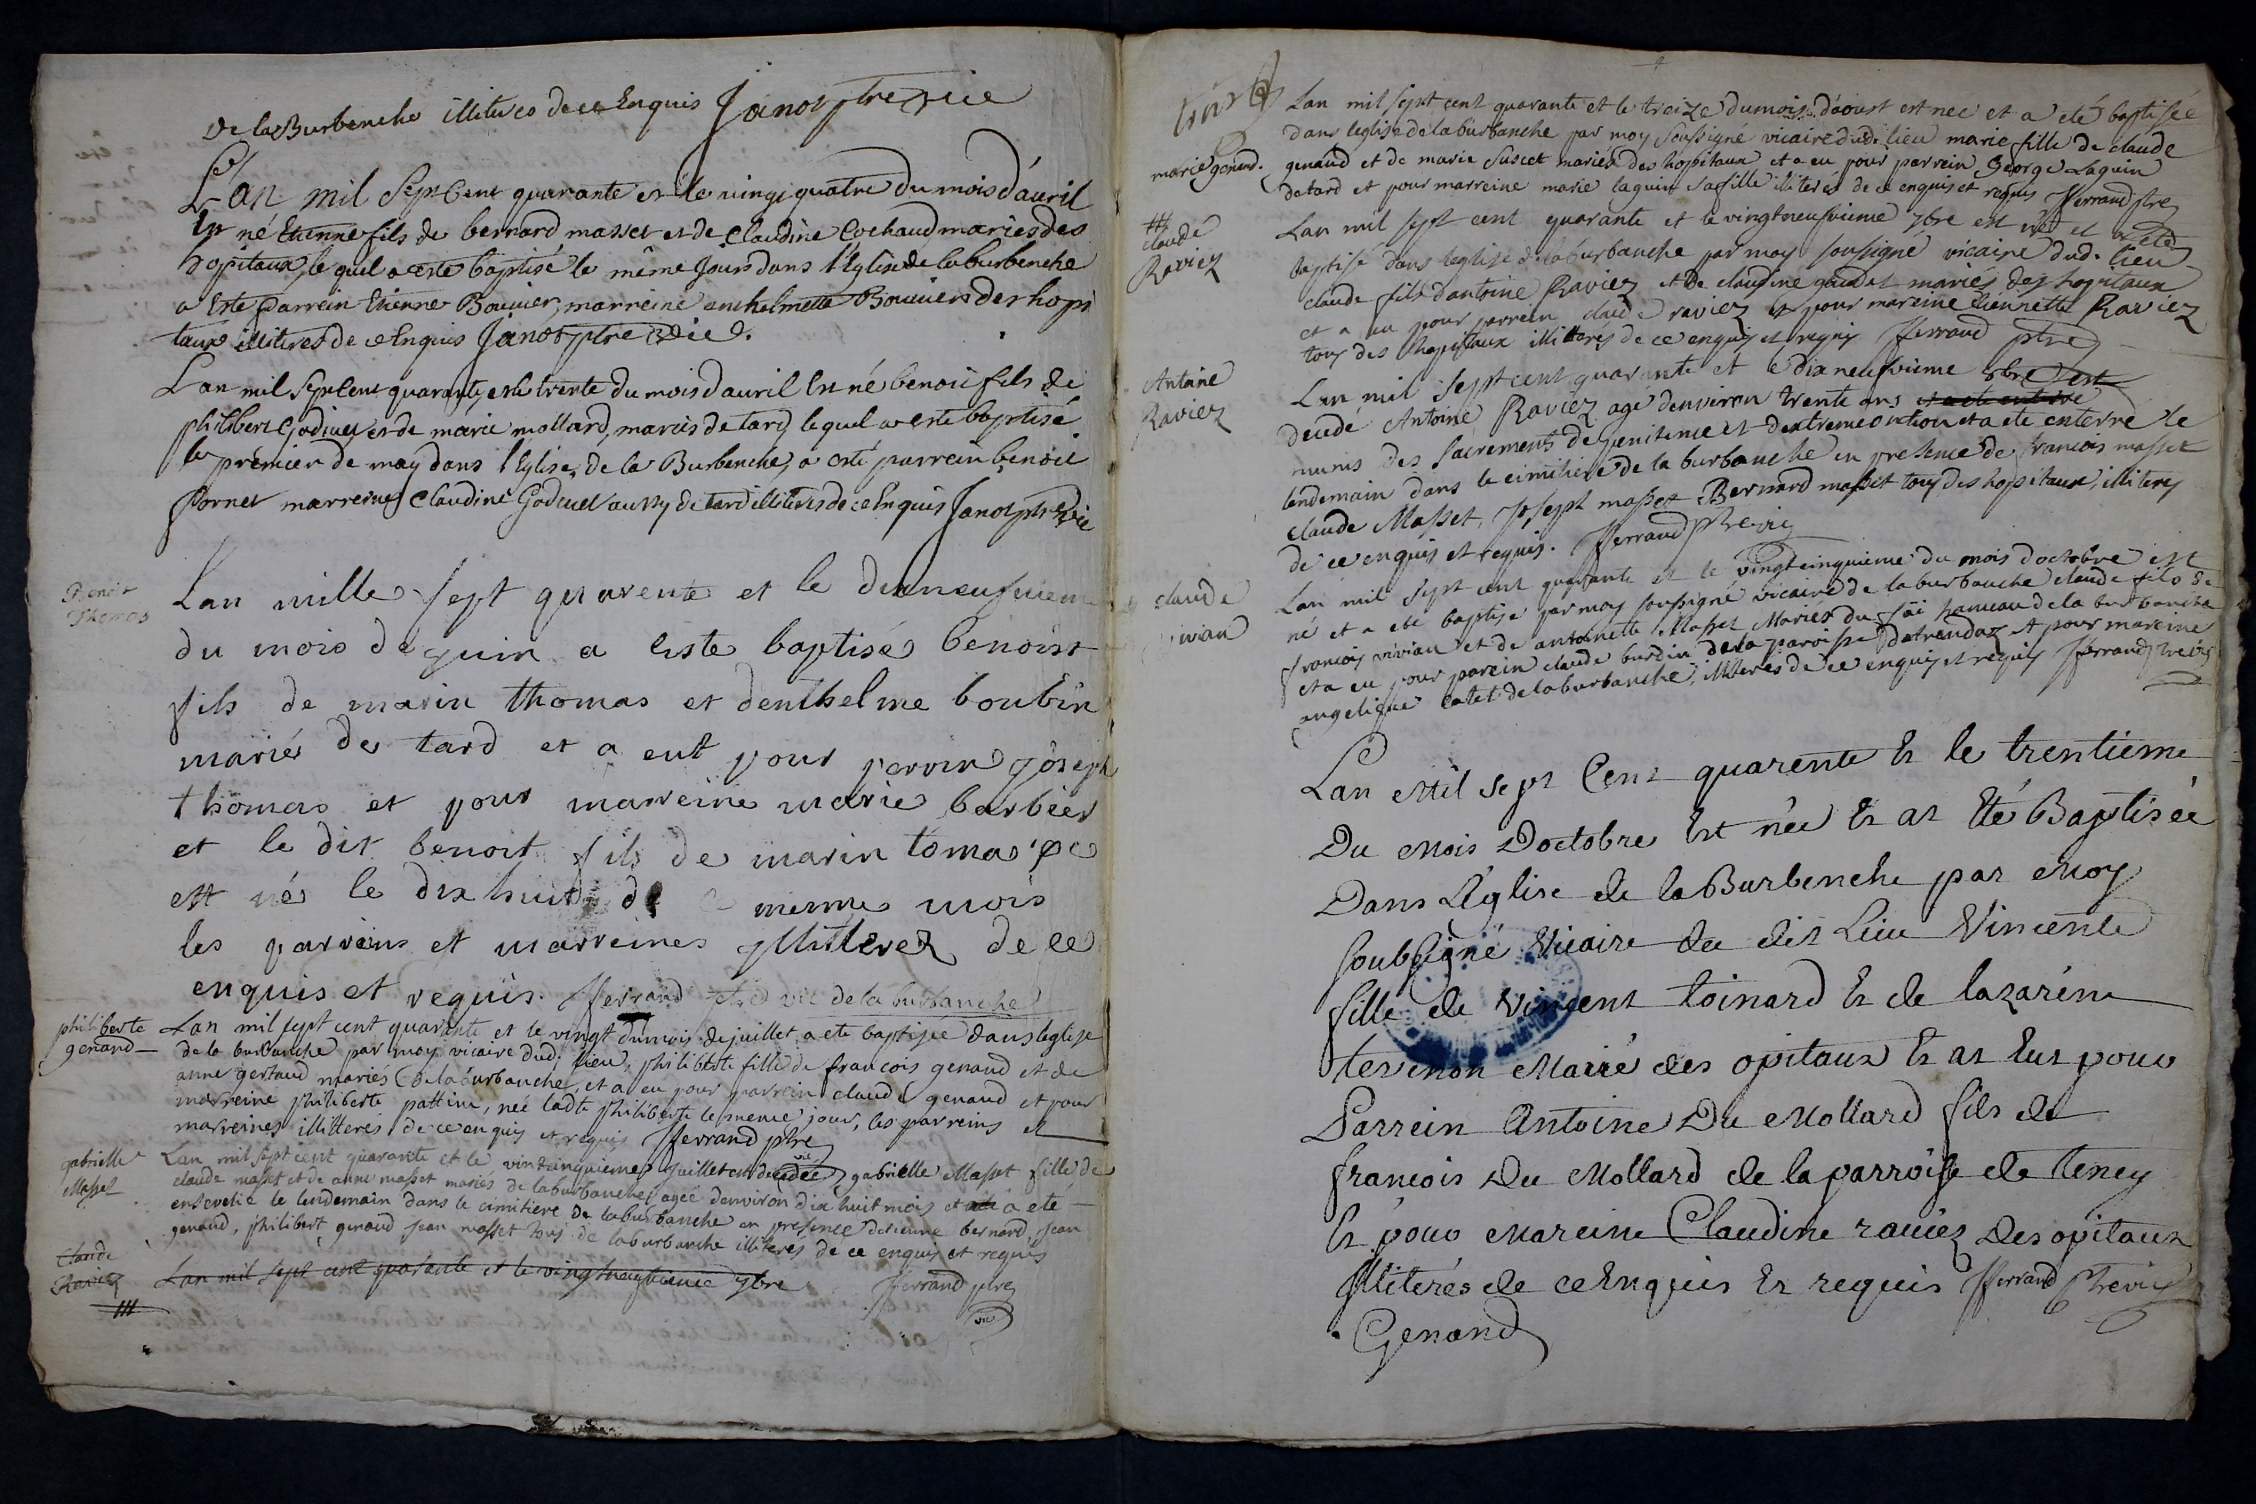 de la Burbenche illiteres de ce Enquis Janot ptre vic
L'an mil Sept Cent quarante et le vingt quatre du mois d'auril
Est né Etienne fils de bernard masset et de Claudine Cochaud mariés des
hopitaux, le quel a esté baptisé le même Jour dans l'Eglise de la burbenche
a Esté parrein Etienne Bouvier, marreine anthelmette Bouvier des hopi
taux illiteres de ce Enquis Janot ptre vic.
L'an mil Sept Cent quarante, et le trente du mois d'auril Est né benoit fils de
philibert Godivet et de marie mollard, mariés de tard, le quel a esté baptisé
le premier de may dans l'Eglise de la Burbenche, a esté parrein benoit
fornet marreine Claudine Godivet aussy de tard illiteres de ce Enquis Janot ptre vic
Benoit
Thomas
Lan mille sept quarente et le dixneufviem
du mois de juin a este baptisé benoist
fils de marin thomas et denthelme boubin
mariés de tard et a eut pour parrin joseph
thomas et pour marreine marie barbier
et le dit benoit fils de marin toma
est né le dix huit de meme mois
les parreins et marreines illiterez de ce
enquis et requis. fferrand ptre vic de la burbanche
philiberte
genand
Lan mil sept cent quarante et le vingt du mois de juillet a eté baptisée dans leglise
de la burbanche par moy vicaire dud. lieu, philiberte fille de francois genaud et de
anne gertaud mariés de la burbanche, et a eu pour parrein claude genaud et pour
marreine philiberte pattin, née ladte philiberte le meme jour, les parreins et
marreines illitterés de ce enquis et requis fferrand ptre
vic
gabrielle
Masset
Lan mil sept cent quarante et le vintcinquieme juillet est decedée gabrielle Masset fille de
claude masset et de anne masset mariés de la burbanche, agée denviron dix huit mois et a eté
ensevelie le lendemain dans le cimitiere de la burbanche en presence detienne bernard, jean
genaud, philibert genaud jean masset tous de la burbanche illiterés de ce enquis et requis
claude
Raviez
Lan mil sept cent quarante et le vingtneufvieme 7bre fferrand ptre
vic
marie genend.
Lan mil sept cent quarante et le treize du mois d'aoust est nee et a eté baptisée
dans leglise de la burbanche par moy soussigné vicaire dud. lieu marie fille de claude
genaud et de marie suscet mariés des hopitaux et a eu pour parrein george Laguin
de tard et pour marreine marie laguin sa fille illiterés de ce enquis et requis fferrand ptre
claude
Raviez
Lan mil sept cent quarante et le vingtneufvieme 7bre est né et a eté
baptisé dans leglise de la burbanche par moy soussigné vicaire dud. lieu
claude fils dantoine Raviez et de claudine gaudet mariés des hopitaux
et a eu pour perrein claude raviez et pour mareine pierrette Raviez
tous des hopitaux illitterés de ce enquis et requis fferrand ptre
Antoine
Raviez
Lan mil sept cent quarante et le dixneufvieme 8bre est
decedé Antoine Raviez agé denviron trente ans et a eté enterré
munis des sacrements de penitence et dextreme onction et a eté enterré le
lendemain dans le cimitiere de la burbanche en presence de francois masset
claude Masset, Joseph masset Bernard masset tous des hopitaux, illiterés
de ce enquis et requis. fferrand ptre vic
claude
vivian
Lan mil sept cent quarante et le vingtcinquieme du mois doctobre est
né et a eté baptisé par moy soussigné vicaire de la burbanche claude fils de
francois vivian et de antoinette Masset Mariés du fai hameau de la burbanche
et a eu pour parein claude burdin de la paroisse detrendaz et pour mareine
angelique catet de la burbanche, illiteres de ce enquis et requis fferrand ptre vic
Lan Mil sept Cent quarente Et le trentieme
Du Mois Doctobre Est née Et at Eté Baptisée
Dans L'église de la Burbenche par Moy
soubsigné Vicaire du dit Lieu Vincente
fille de Vincent toinard Et de lazarene
tervenon Marié des opitaux Et at Eut pour
Parrein Antoine Du Mollard fils de
francois du Mollard de la parroisse de teney
Et pour Mareine Claudine raviez des opitaux
Illiterés de ce Enquis Et requis fferrand ptre vic
Genand